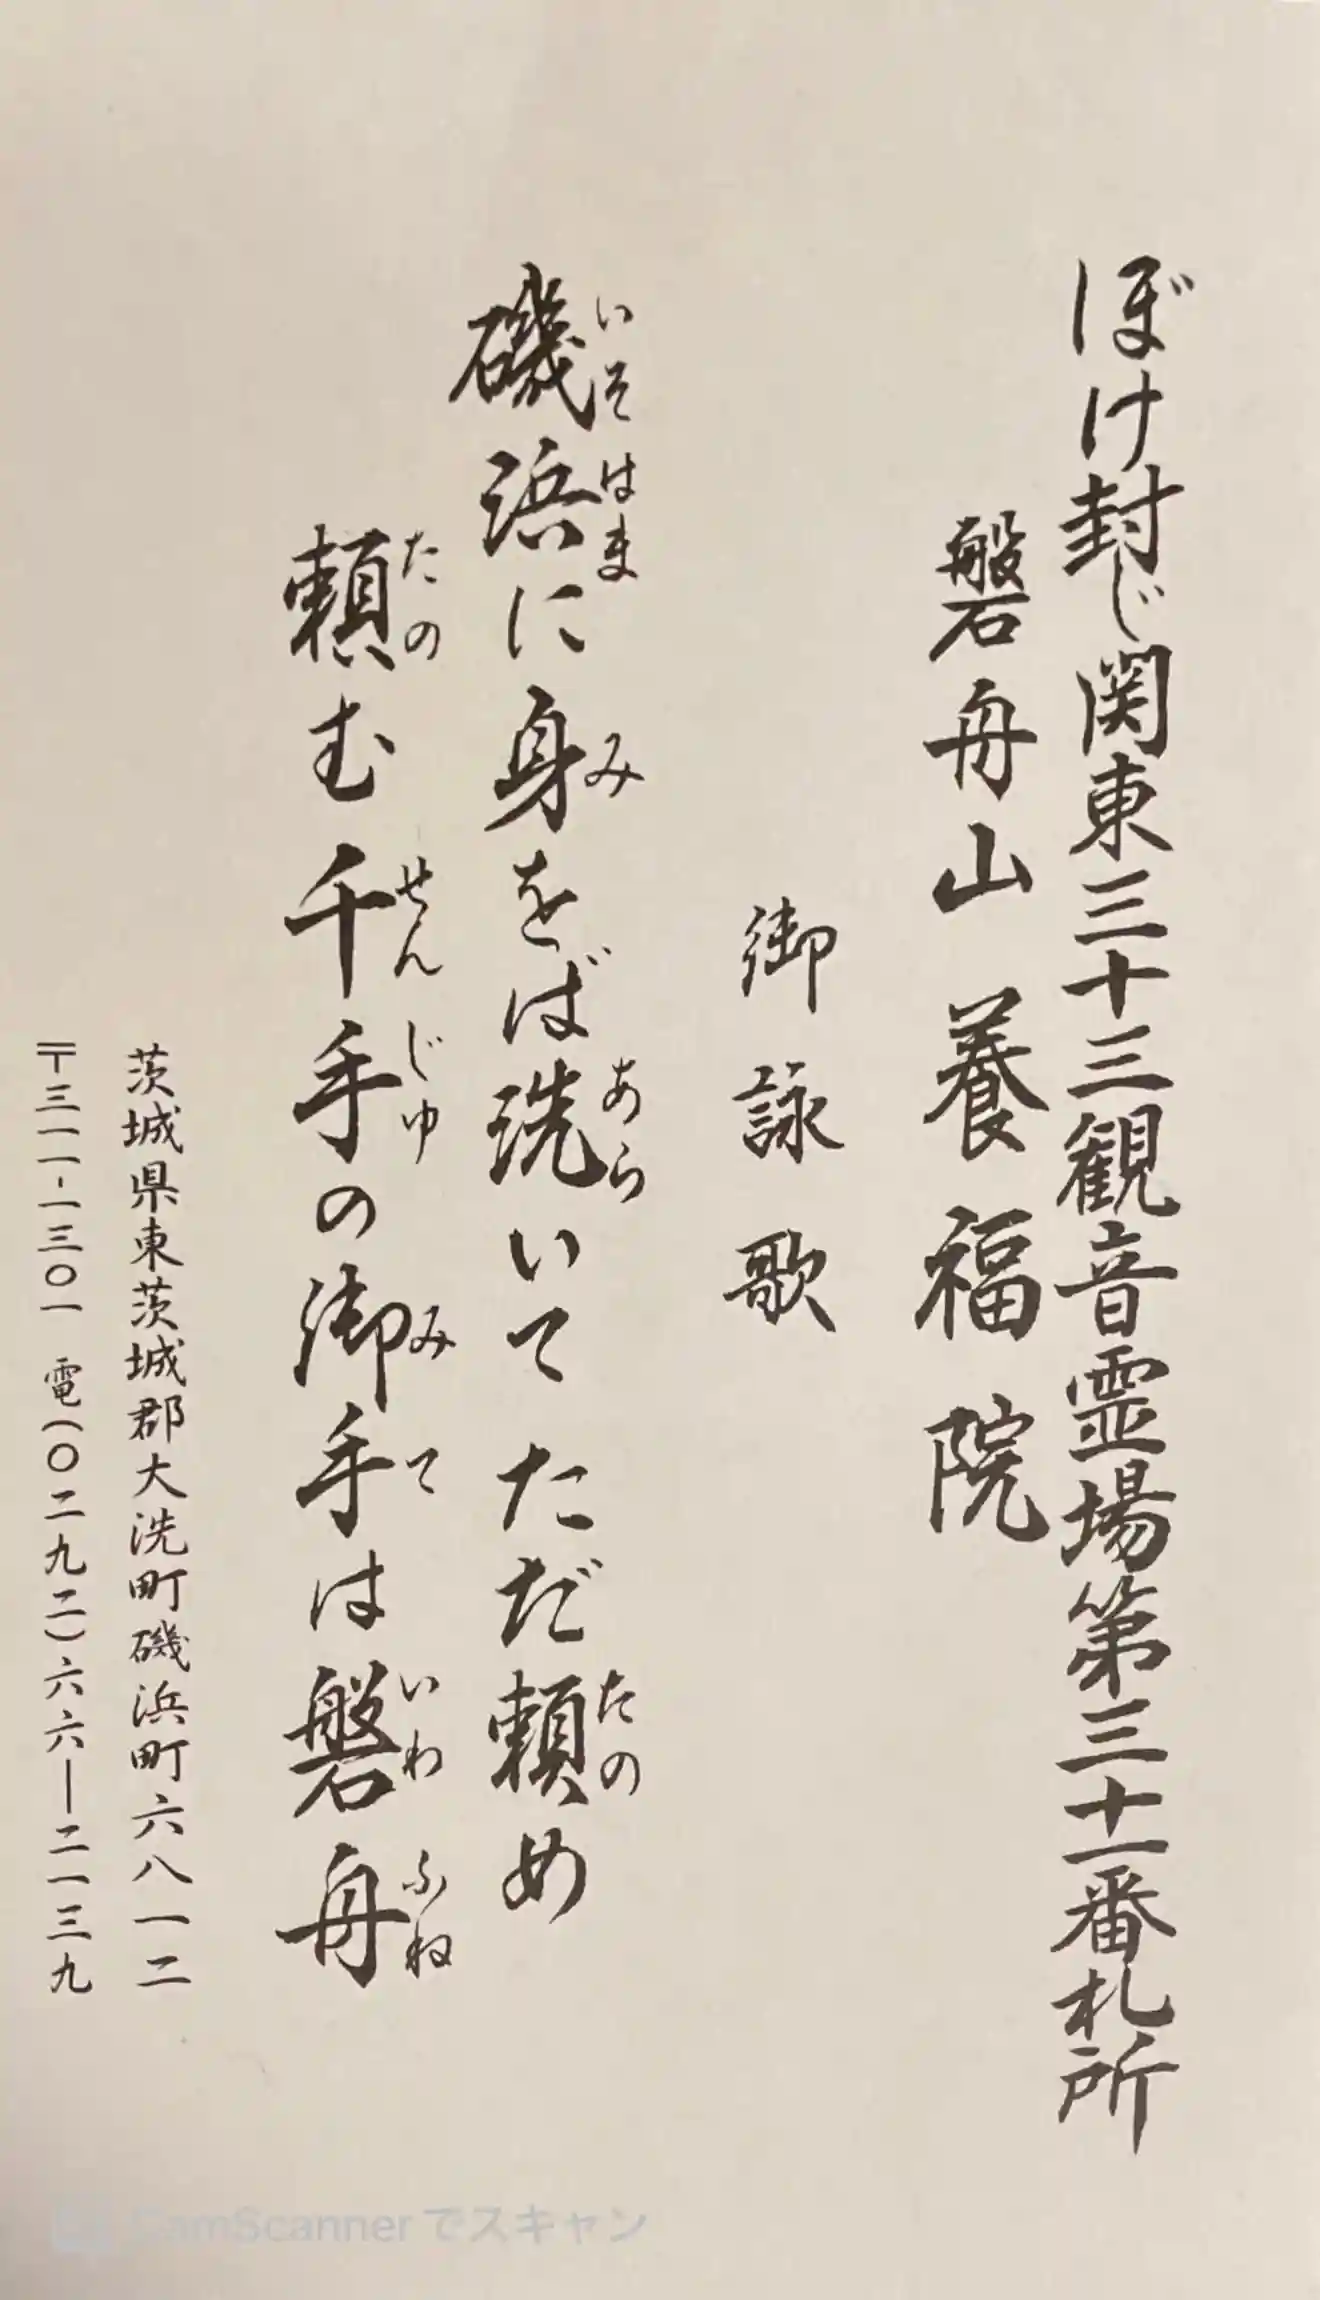 ぼけ封じ関東三十三観音霊場第三十一番札所
磐舟山 養福院
御詠歌
磯浜に身をば洗いてただ頼め
いそはま み あら たの
頼む千手の御手は磐舟
たの せんじゅ みて いわふね
茨城県東茨城郡大洗町磯浜町六八一二
〒三一一-一三〇一 電(〇二九二)六六―二一三九
CamScannerでスキャン